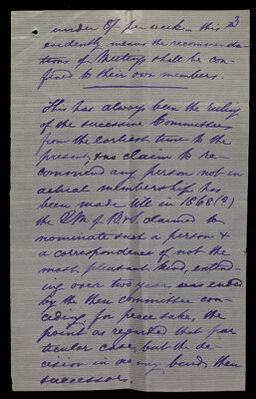 3
under 8/- per week - this
evidently means the recommenda
tions of Meetings shall be con-
fined to their own members.
This has always been the ruling
of the successive Committees
from the earliest time to the
present, & no claim to re-
commend any person not in
actual membership has
been made till in 1868(?)
the QM of B&S. claimed to
nominate such a person &
a correspondence of not the
most pleasant kind, extend-
ing over two years was ended
by the then committee con-
ceding, for peace sake, the
point as regarded that par
ticular case, but the de-
cision in no way binds their
successors.